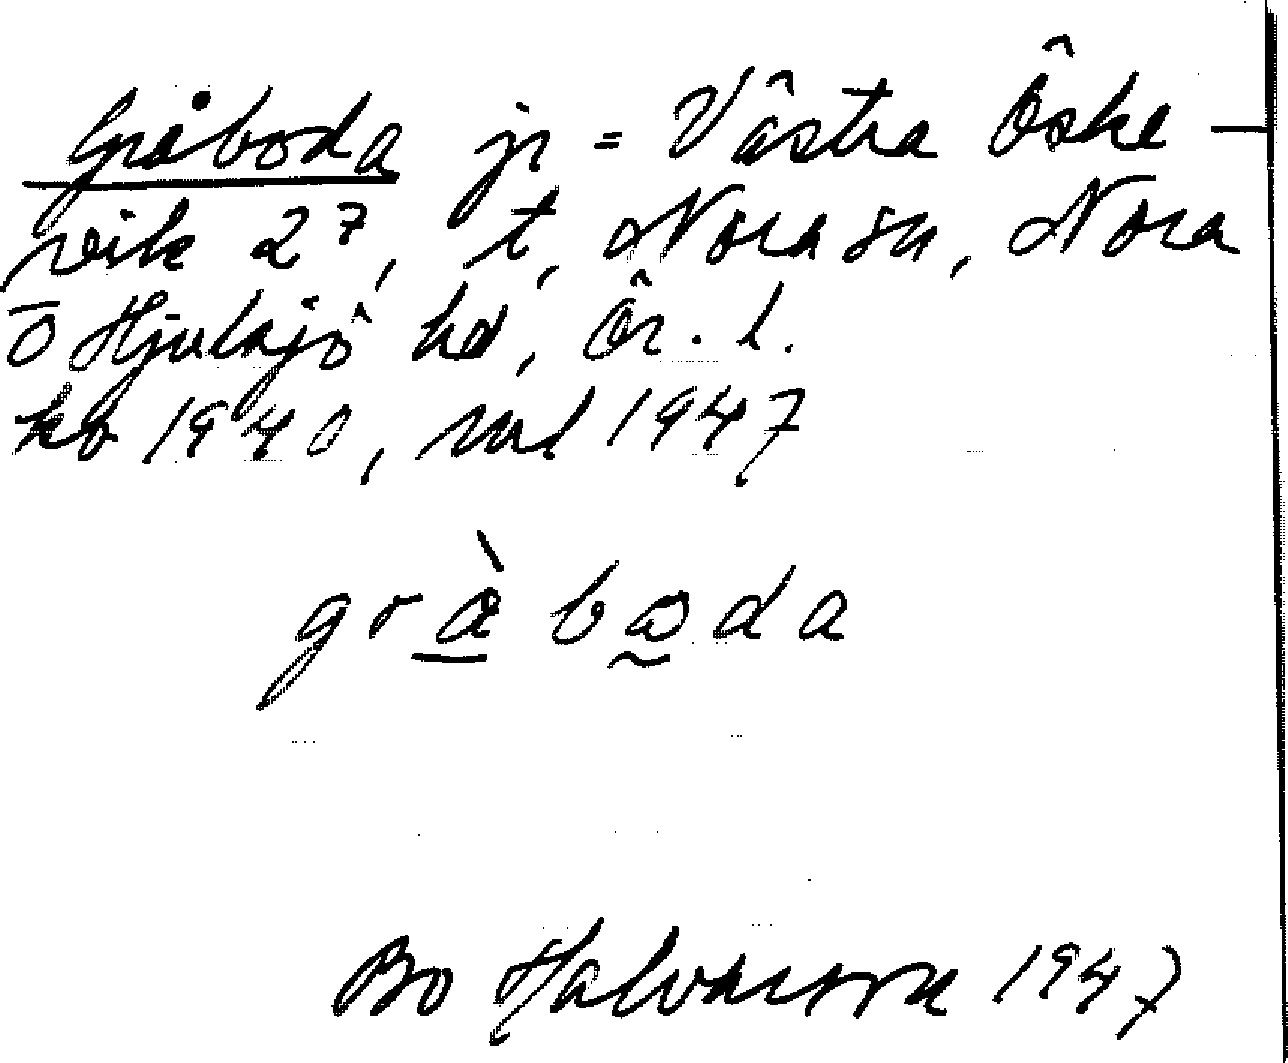 Gråboda jr = Västra Öske-
vik 2⁷, t, Nora sn, Nora
o Hjulsjö hd, Ör. l.
kb 1940, ml 1947
gràboda
Bo Halvarsson 1947